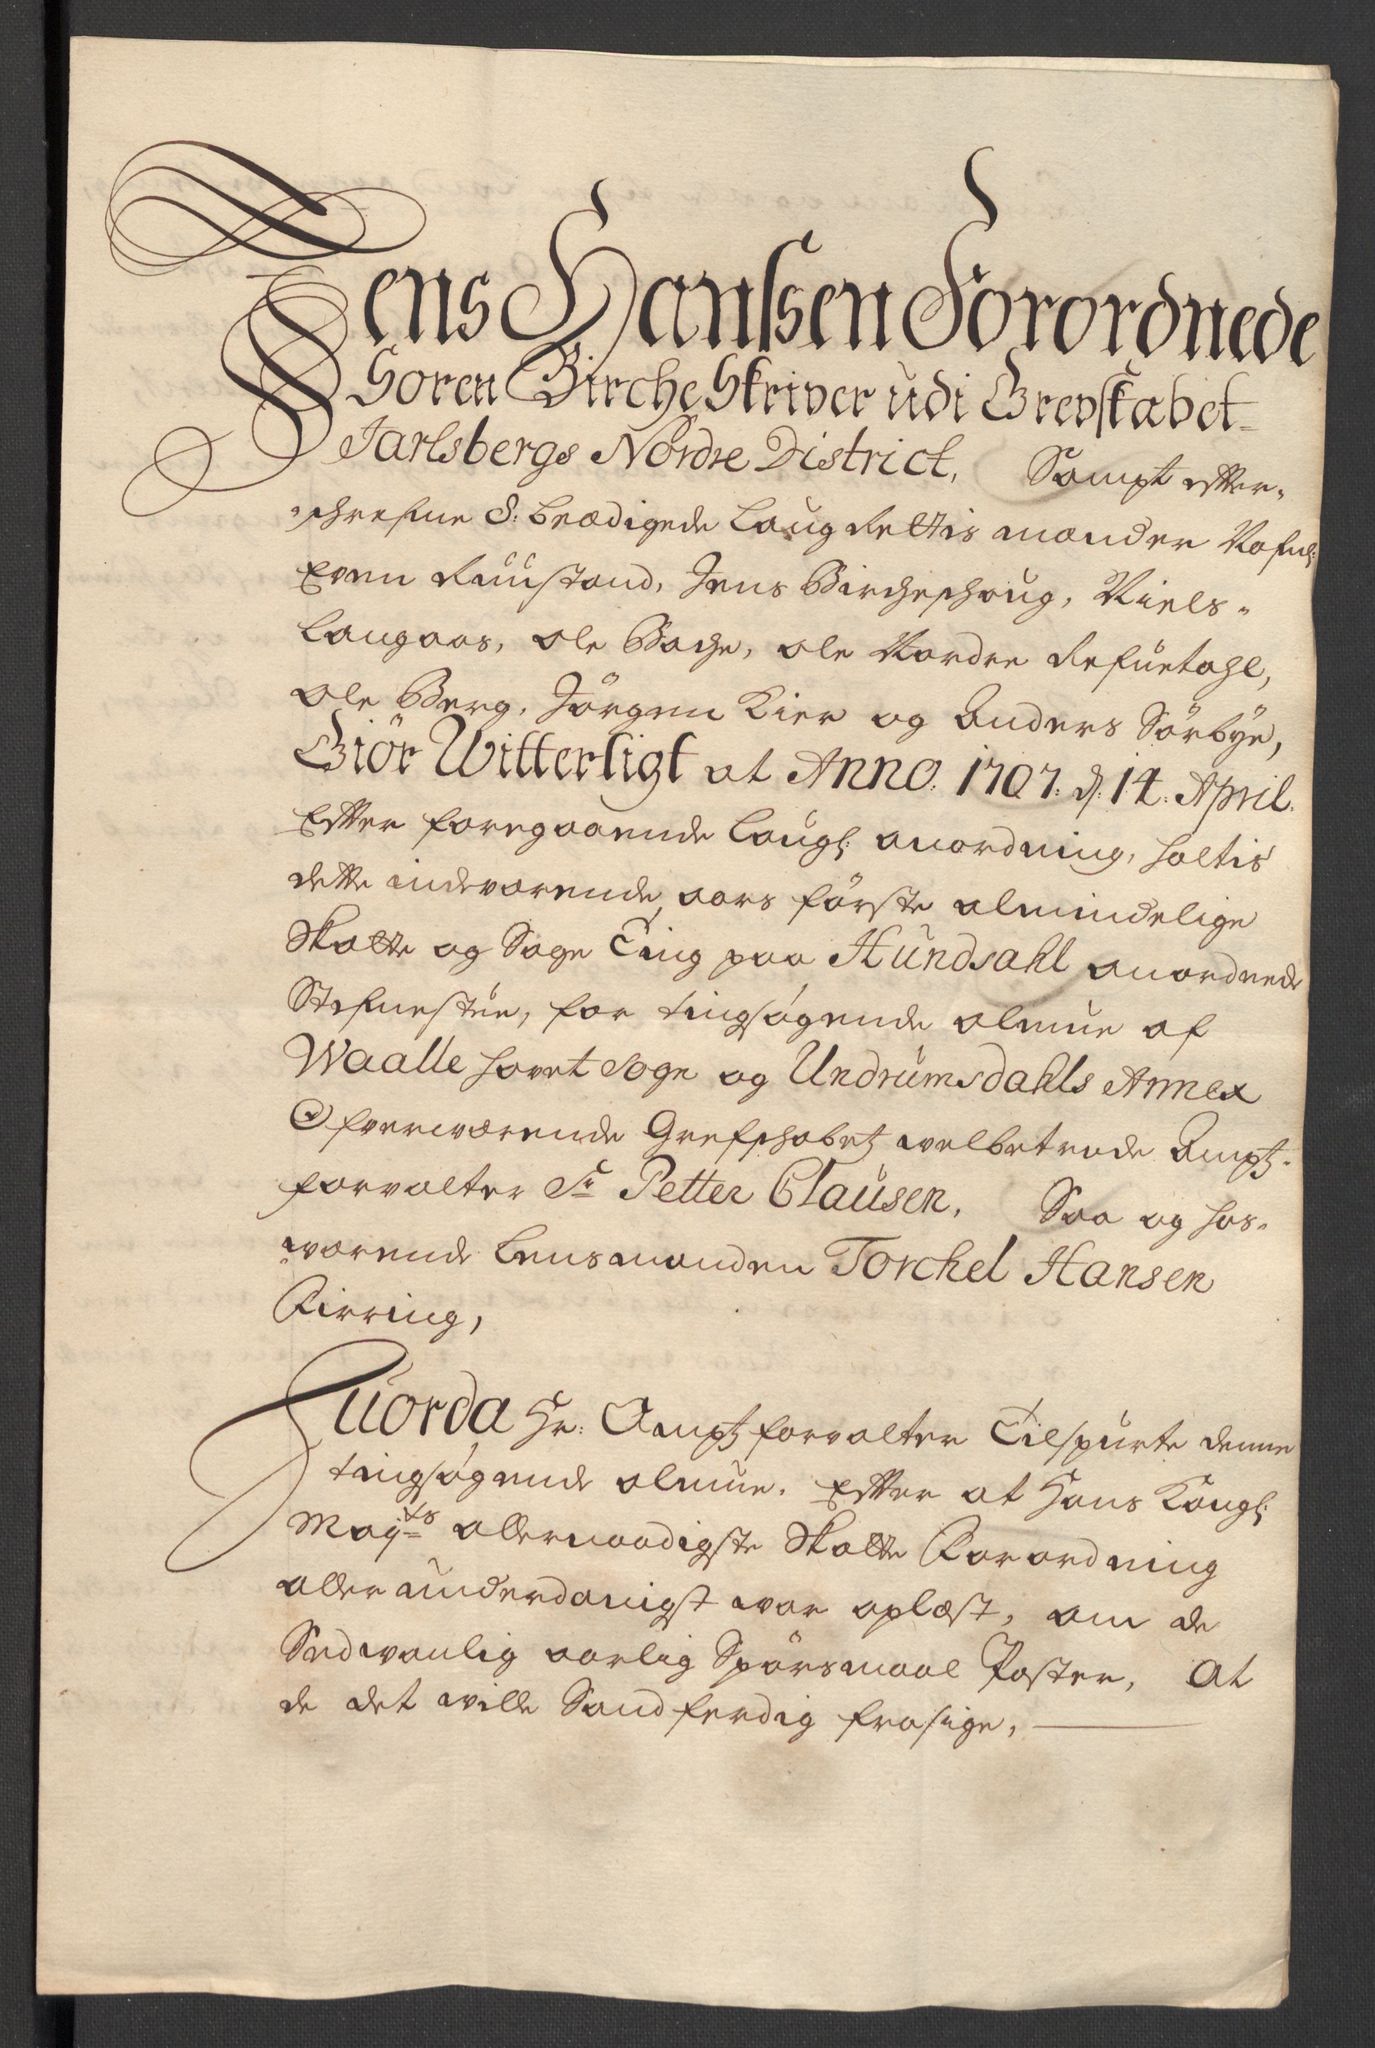 Jens Hanssen Forordnede
Soren Birche Skriver udi Grevskabet
Jarlsbergs Nordre District, Sampt efter-
schrefne 8: beædigede laug Rettis mænder Nafnl:
Even Ruustand, Jens Bircheschoug, Niels
Langaas, ole Bache, ole Nordre Refuetahl,
ole Berg, Jörgen Kier og Anders Sörbÿe,
Giör Witterligt at Anno. 1707. d. 14. April.
Effter foregaaende laugl: anordning, holtis
dette indeværende aars förste almindelige
Skatte og Sage Ting paa Hundsahl anordnede
Stefnestue, for tingsøgende almue af
Waalle hovet Sogn og Undrumsdahls Annex
Ofverværende Grefschabetz welbetrode Ampt-
forvalter Sr Petter Clausen, Saa og hos-
wærende lensmanden Torchel Hansen
Firring,
Huorda Hr: Amptforvalter Tilspurte denne
tingsøgende almue. Effter at Hans Kongl:
Mayts allernaadigste Skatte Forordning
allerunderdanigst war oplæst, om de
Sædwanlig aarlig Spörsmaal Poster, At
de det wille Sandferdig frasige,